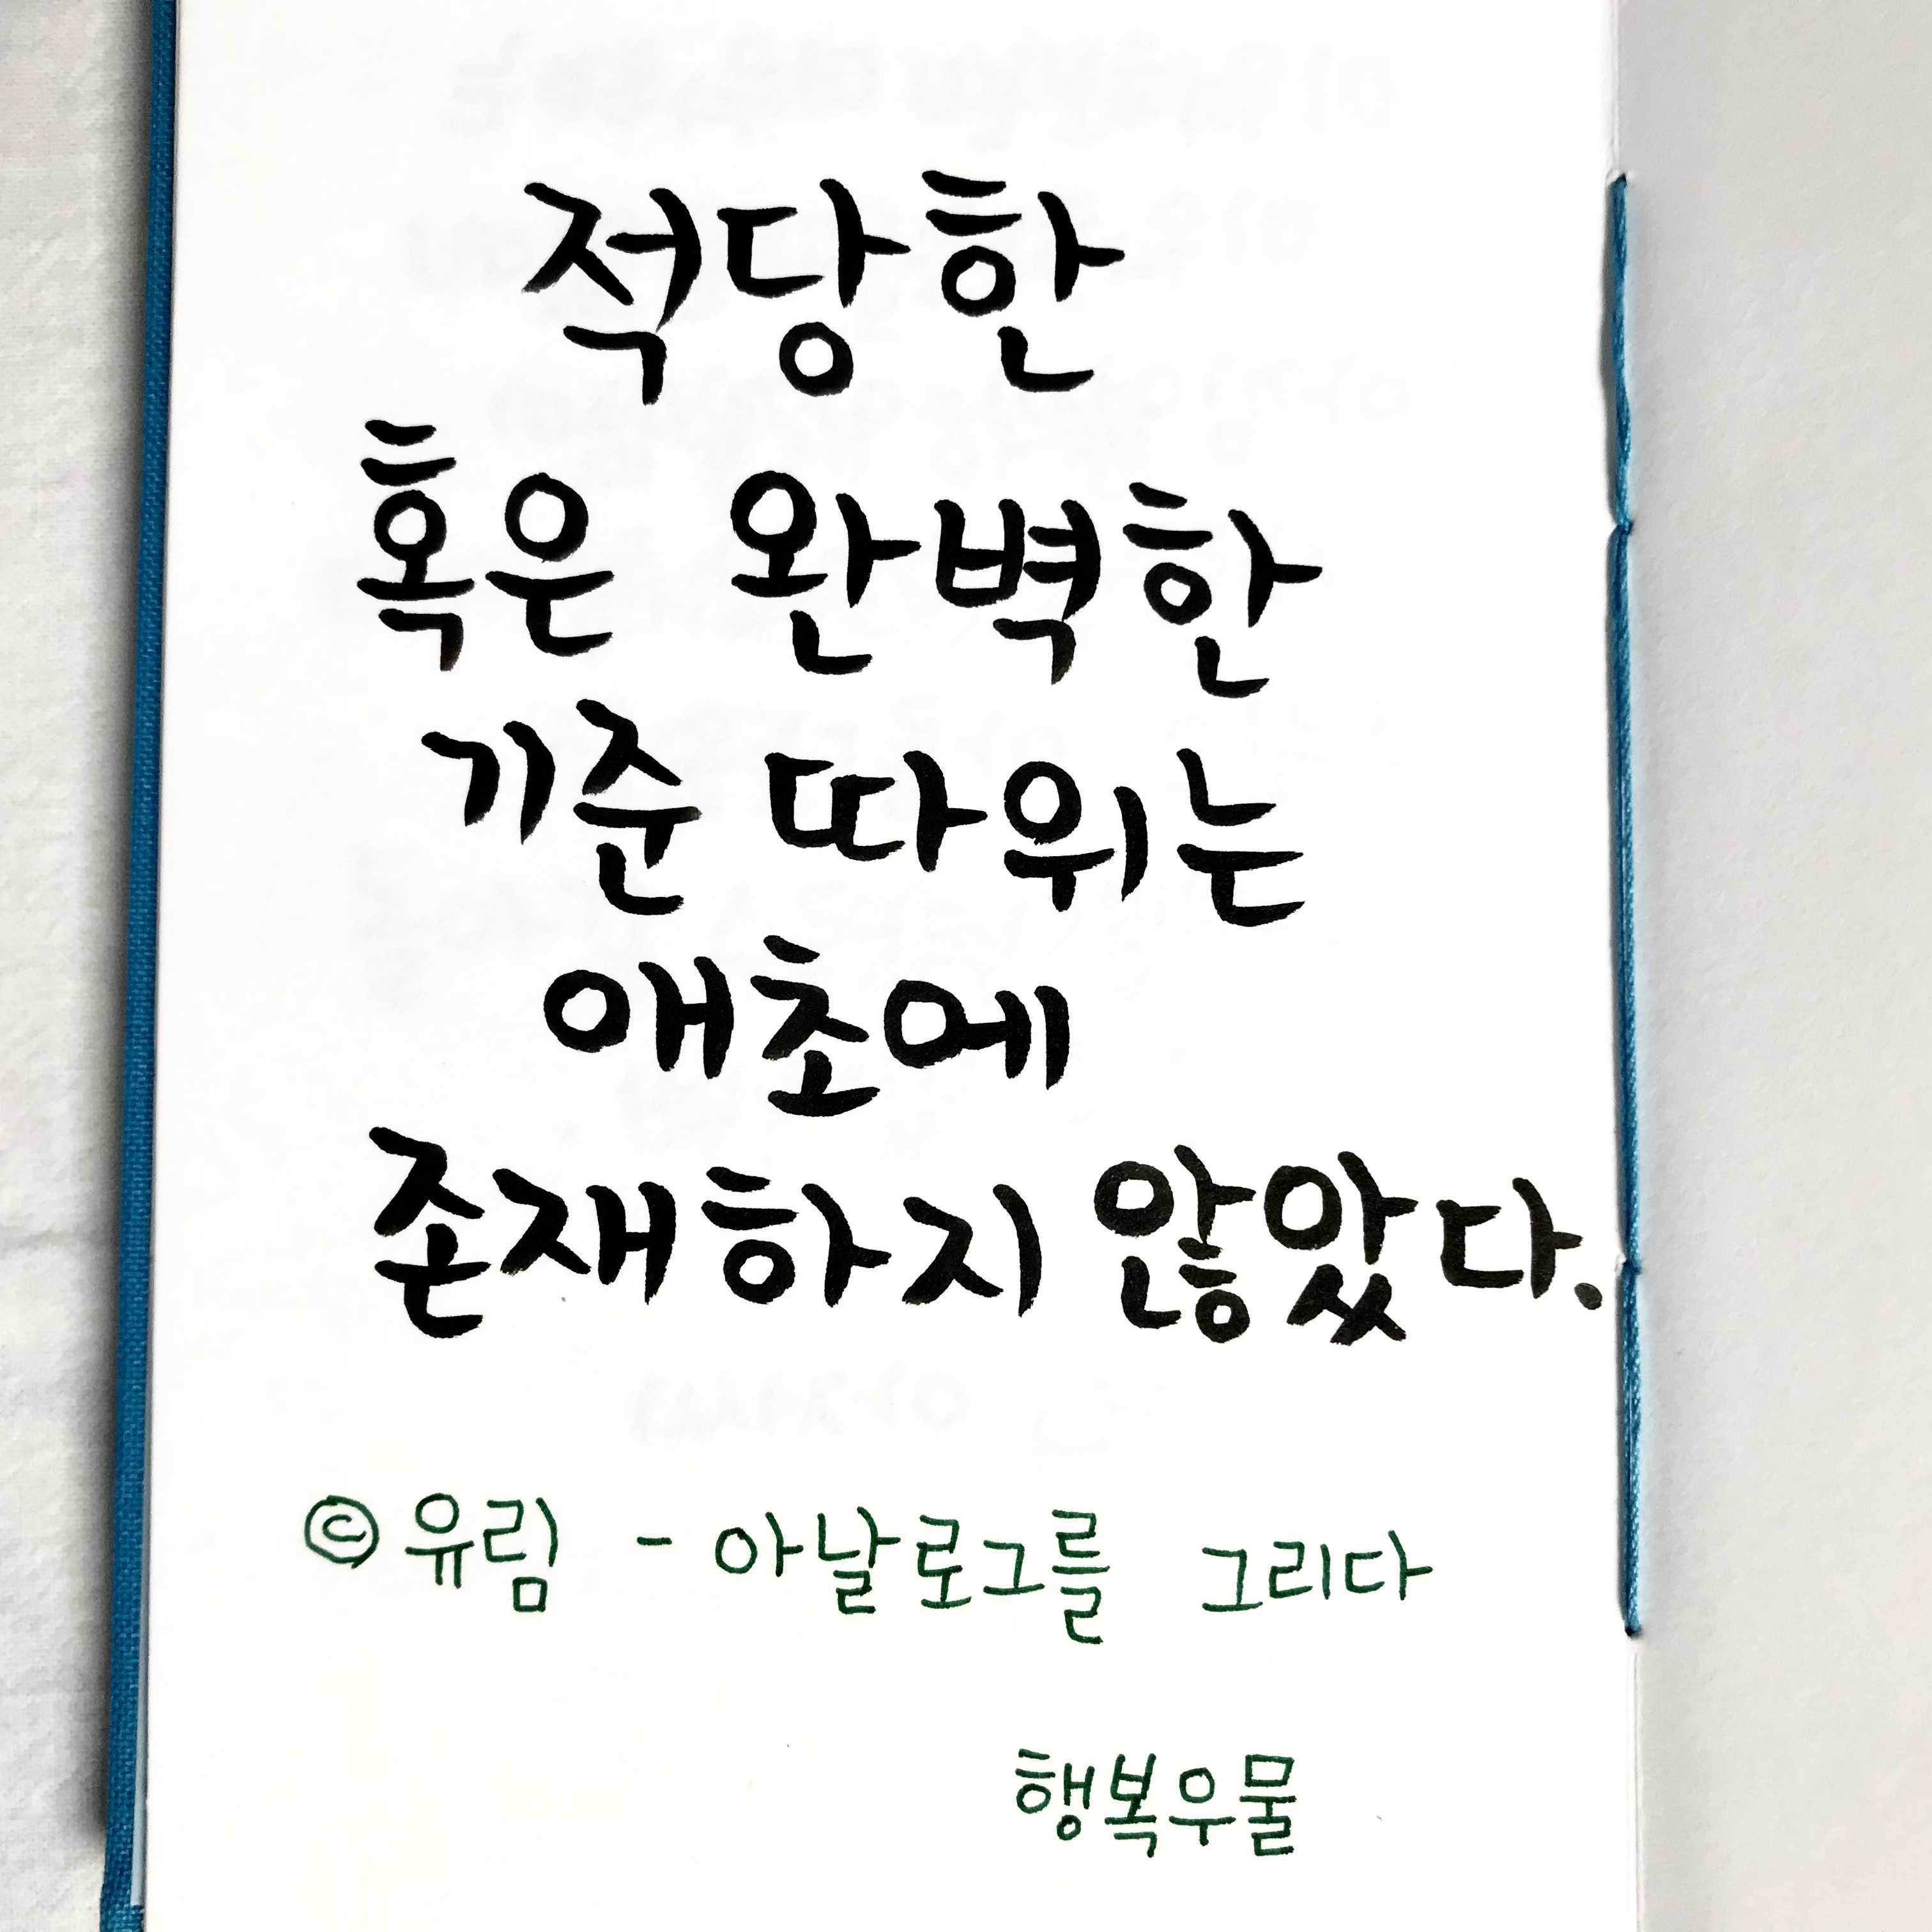 적당한
혹은 완벽한
기준 따위는
애초에
존재하지 않았다.
ⓒ유림 - 아날로그를 그리다
행복우물